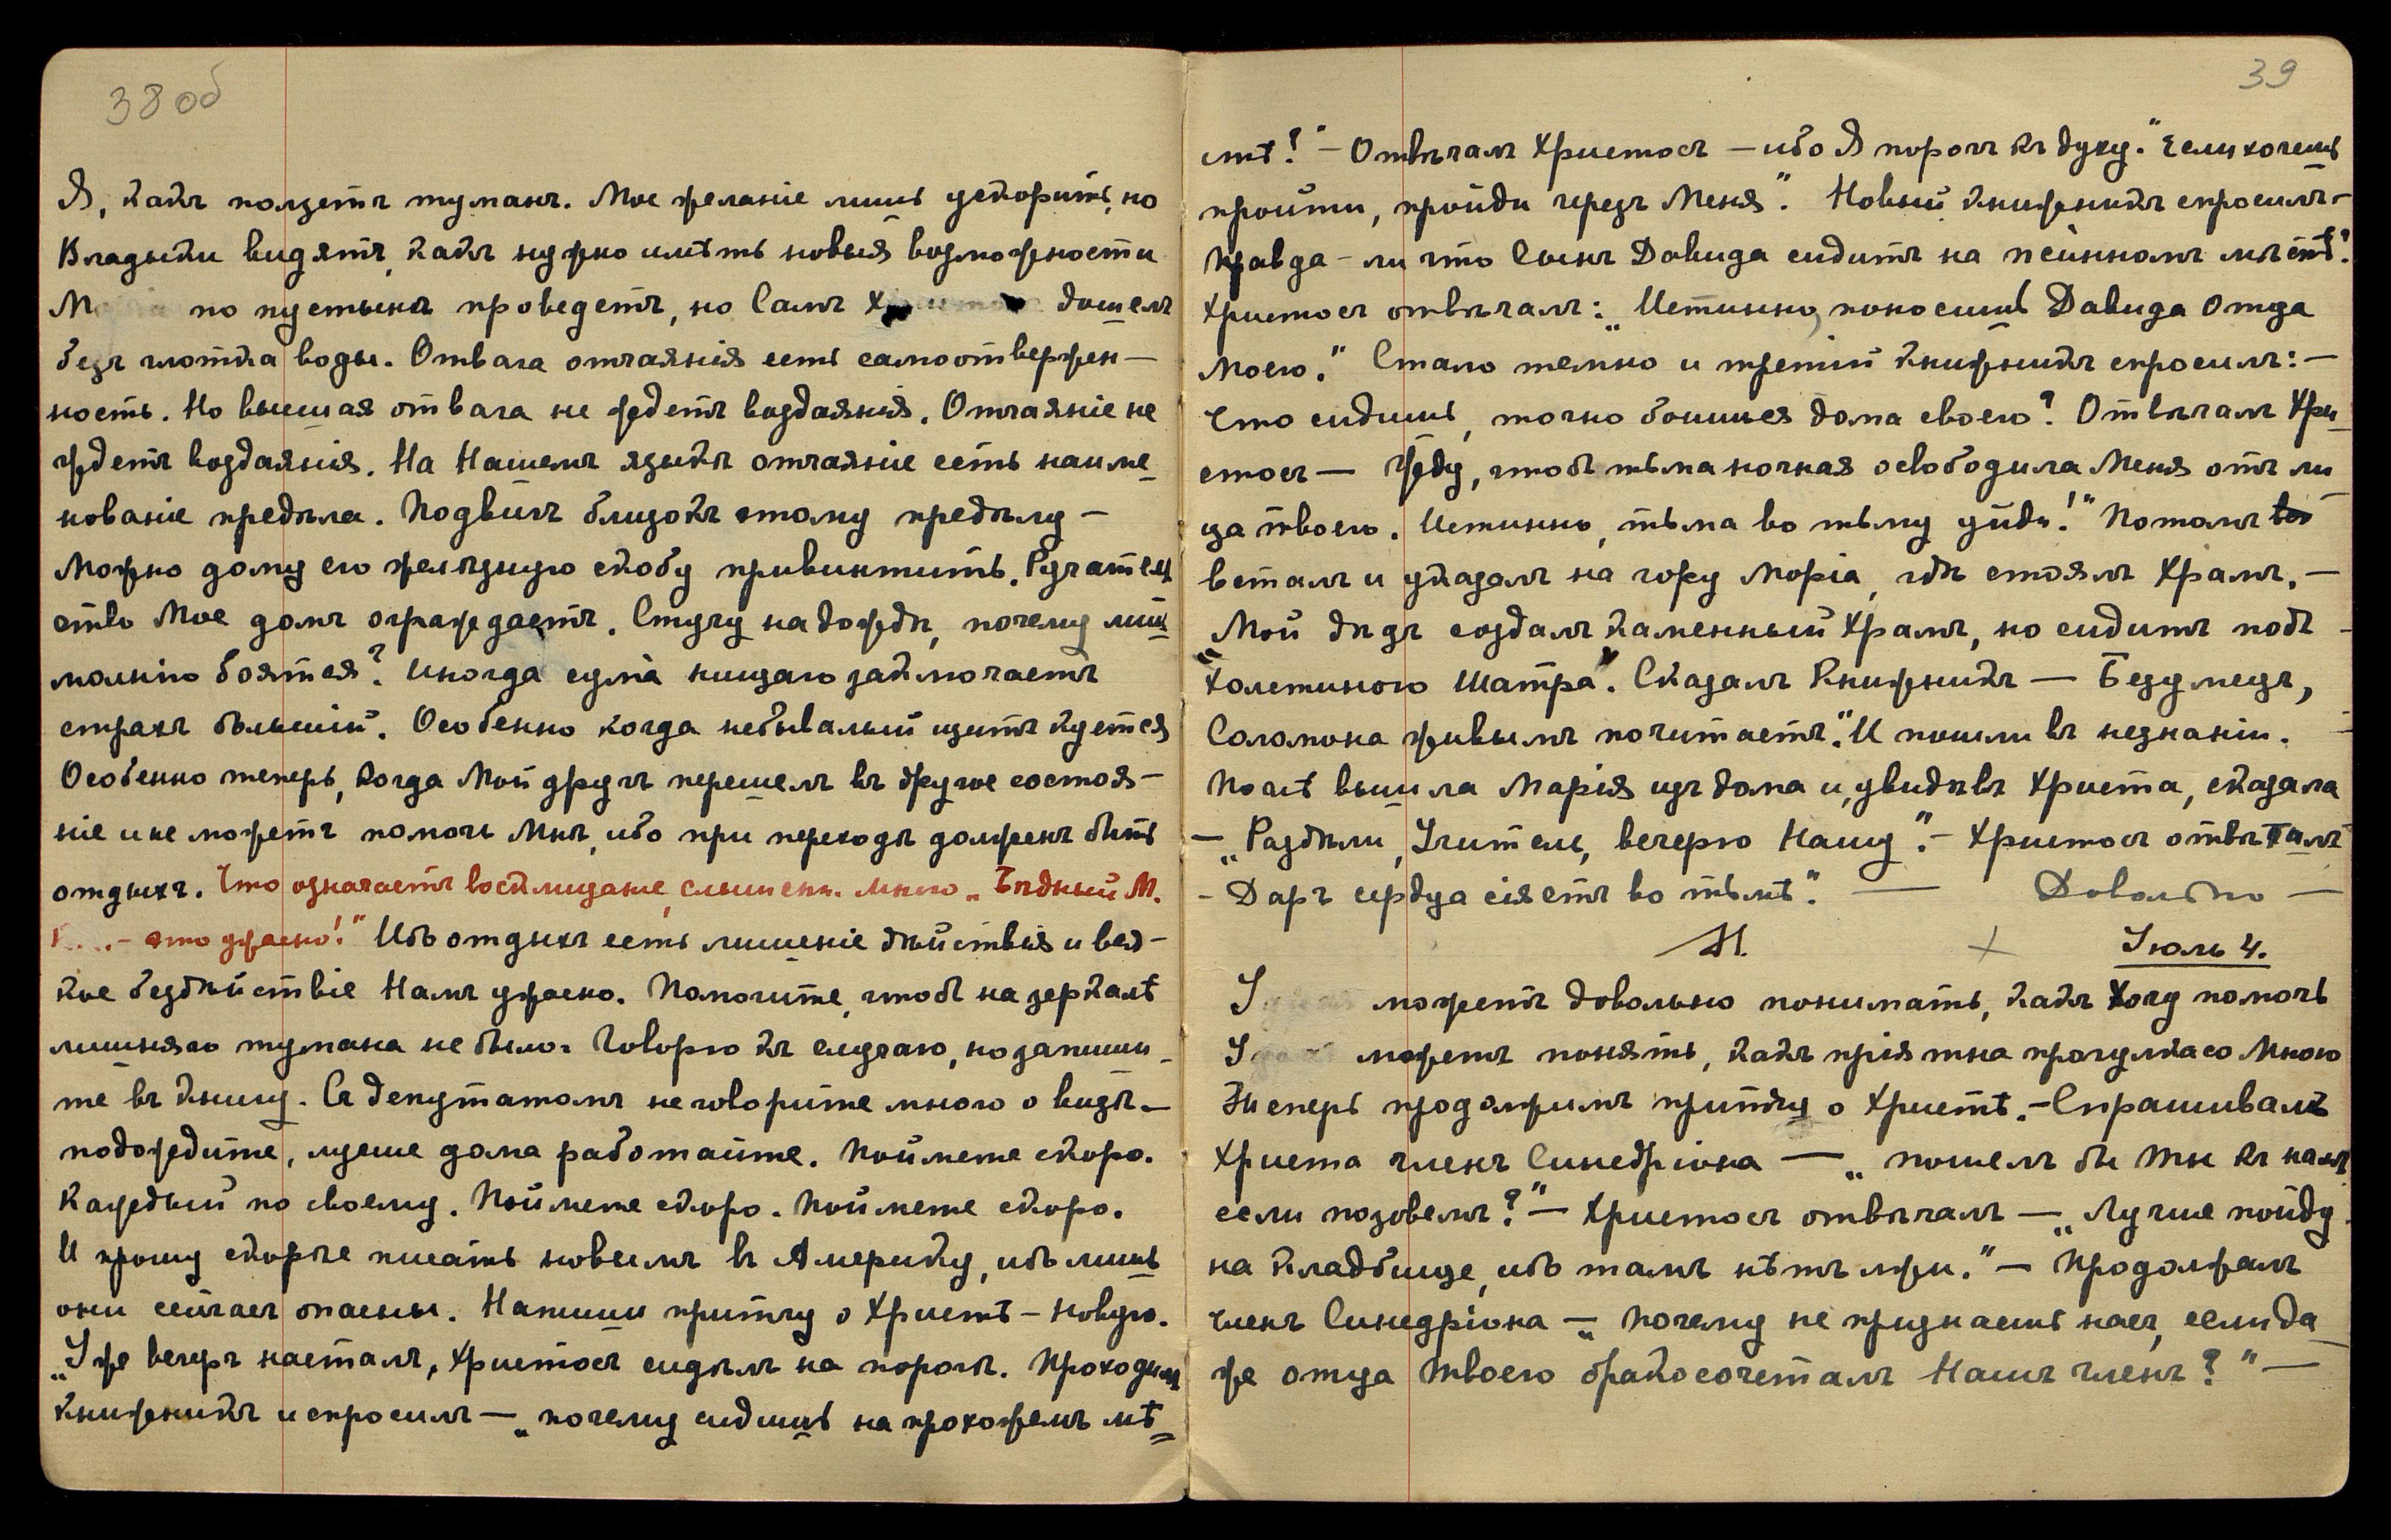 38 об
Я, какъ ползетъ туманъ. Мое желаніе лишь ускорить, но
Владыки видятъ, какъ нужно имѣть новыя возможности
по пустынѣ проведетъ, но Самъ дошелъ
безъ глотка воды. Отвага отчаянія есть самоотвержен-
ность. Но высшая отвага не ждетъ воздаянія. Отчаяніе не
ждетъ воздаянія. На Нашемъ языкѣ отчаяніе есть наиме
нованіе предѣла. Подвигъ близокъ этому предѣлу —
Можно дому его желѣзную скобу привинтить. Ручатель
ство Мое домъ ограждаетъ. Стучу на дождѣ, почему лишь
молнію боятся? Иногда сума нищаго заключаетъ
страхъ бѣльшій. Особенно когда небывалый щитъ куется
Особенно теперь, когда Мой другъ перешелъ въ другое состоя-
ніе и не можетъ помочь Мнѣ, ибо при переходѣ долженъ быть
отдыхъ. Что означаетъ восклицаніе, слышен. мною „Бѣдный М.
— это ужасно!" Ибо отдыхъ есть лишеніе дѣйствія и вся-
кое бездѣйствіе Намъ ужасно. Помогите, чтобъ на зеркалѣ
лишняго тумана не было. Говорю къ случаю, но запиши-
те въ книгу. Съ депутатомъ не говорите много о визѣ —
подождите, лучше дома работайте. Поймете скоро.
Каждый по своему. Поймете скоро. Поймете скоро.
И прошу скорѣе писать новымъ въ Америку, ибо лишь
они сейчасъ опасны. Напиши притчу о Христѣ — новую.
„Уже вечеръ насталъ, Христосъ сидѣлъ на порогѣ. Проходилъ
книжникъ и спросилъ — „почему сидишь на прохожемъ мѣ
39
стѣ?" — Отвѣчалъ Христосъ — ибо Я порогъ къ духу." Если хочешь
пройти, пройди черезъ Меня". Новый книжникъ спросилъ —
правда-ли что Сынъ Давида сидитъ на псинномъ мѣстѣ?
Христосъ отвѣчалъ: „Истинно, поносишь Давида Отца
Моего." Стало темно и третій книжникъ спросилъ: —
Что сидишь, точно боишься дома своего? Отвѣчалъ Хри
стосъ — Жду, чтобъ тьма ночная освободила Меня отъ ли
ца твоего. Истинно, тьма во тьму уйди!" Потомъ
всталъ и указалъ на гору Моріа, гдѣ стоялъ Храмъ. —
„Мой дѣдъ создалъ каменный Храмъ, но сидитъ подъ
холстиною Шатра". Сказалъ Книжникъ — Безумецъ,
Соломона живымъ почитаетъ." И пошли въ незнаніи.
Послѣ вышла Марія изъ дома и, увидѣвъ Христа, сказала
— „Раздѣли, Учитель, вечерю Нашу". — Христосъ отвѣчалъ
— Даръ сердца сіяетъ во тьмѣ". — Довольно —
М. + Іюль 4.
можетъ довольно понимать, какъ Хочу помочь
можетъ понять, какъ пріятна прогулка со Мною
Теперь продолжимъ притчу о Христѣ. — Спрашивалъ
Христа членъ Синедріона — „пошелъ бы Ты къ намъ
если позовемъ?" — Христосъ отвѣчалъ — „Лучше пойду
на кладбище, ибо тамъ нѣтъ лжи." — Продолжалъ
членъ Синедріона — „почему не признаешь насъ, если да
же отца Твоего бракосочеталъ Нашъ членъ?" —